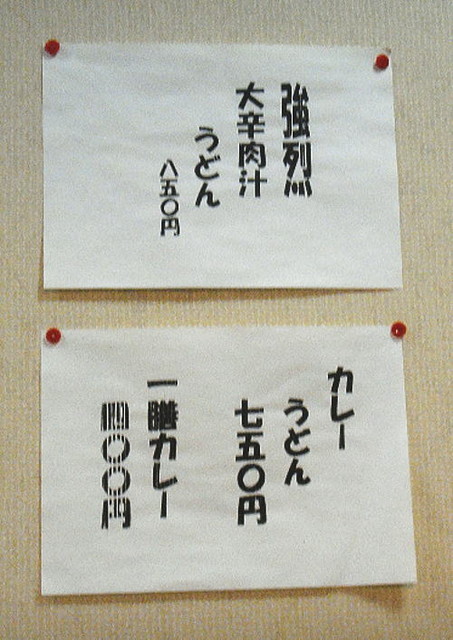 強烈
大辛肉汁
うどん
八五〇円
カレー
うどん
七五〇円
一膳カレー
四〇〇円